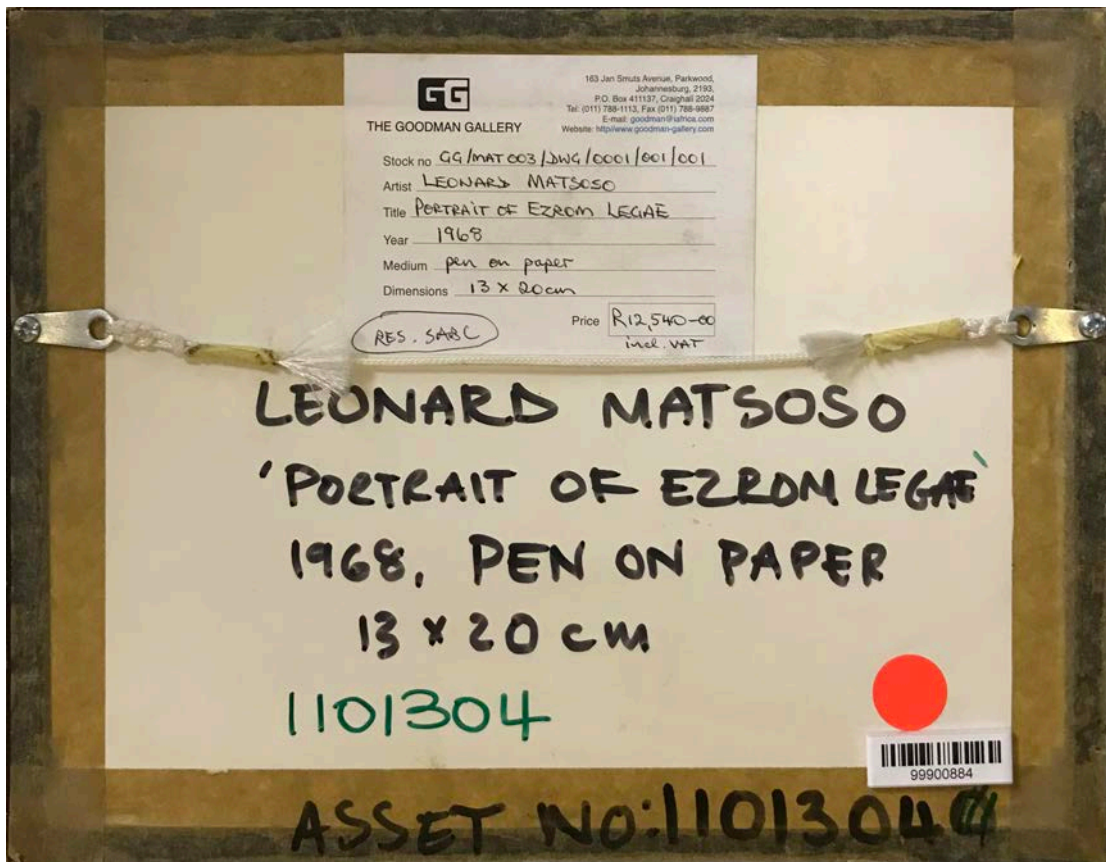 GG
THE GOODMAN GALLERY
163 Jan Smuts Avenue, Parkwood,
Johannesburg, 2193,
P.O. Box 411137, Craighall 2024
Tel: (011) 788-1113, Fax (011) 788-9887
E-mail: goodman@iafrica.com
Website: http//www.goodman-gallery.com
Stock no GG/MAT003/DWG/0001/001/001
Artist LEONARD MATSOSO
Title PORTRAIT OF EZROM LEGAE
Year 1968
Medium pen on paper
Dimensions 13 x 20cm
RES. SABC
Price R12,540-00
incl. VAT
LEONARD MATSOSO
'PORTRAIT OF EZROM LEGAE'
1968, PEN ON PAPER
13 x 20 cm
1101304
99900884
ASSET NO: 1101304